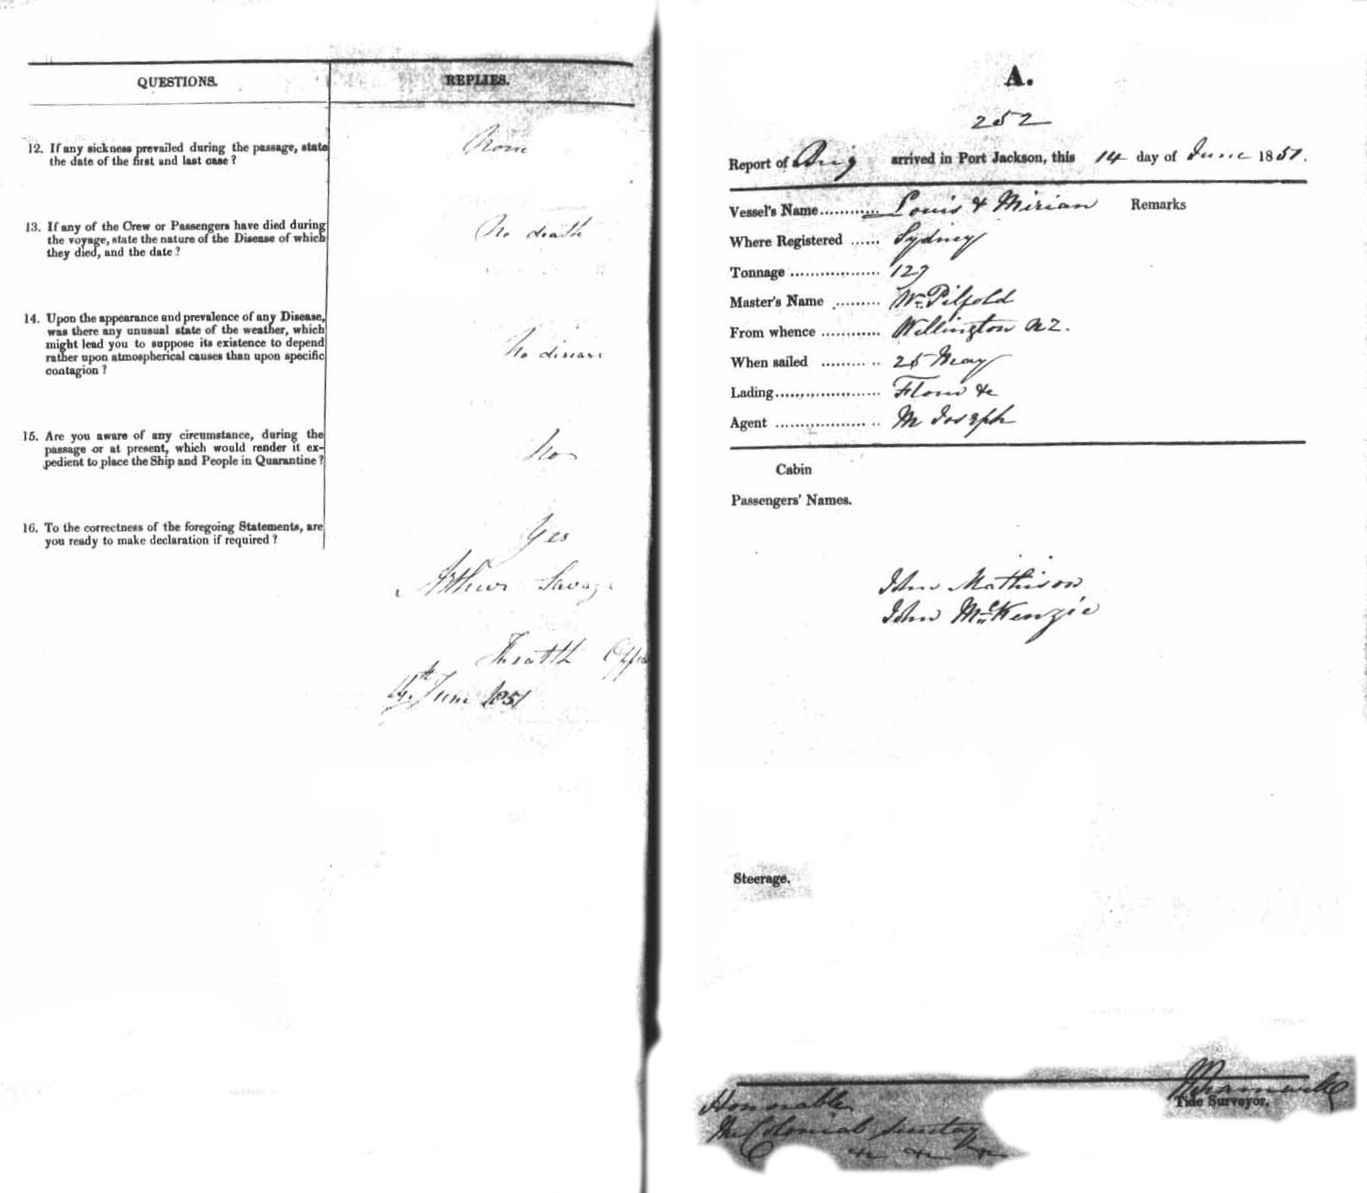 QUESTIONS.
REPLIES.
12. If any sickness prevailed during the passage, state
the date of the first and last case ?
None
13. If any of the Crew or Passengers have died during
the voyage, state the nature of the Disease of which
they died, and the date ?
No death
14. Upon the appearance and prevalence of any Disease,
was there any unusual state of the weather, which
might lead you to suppose its existence to depend
rather upon atmospherical causes than upon specific
contagion ?
No disease
15. Are you aware of any circumstance, during the
passage or at present, which would render it ex-
pedient to place the Ship and People in Quarantine ?
No
16. To the correctness of the foregoing Statements, are
you ready to make declaration if required ?
Yes
Arthur Savage
Health Offi
14th June 1851
A.
252
Report of Brig arrived in Port Jackson, this 14 day of June 1851.
Vessel's Name............ Louis & Mirian
Remarks
Where Registered ...... Sydney
Tonnage .................. 127
Master's Name .......... Wm Pilfold
From whence ............ Wellington NZ.
When sailed ............ 25 May
Lading..................... Flour &c
Agent ..................... M Joseph
Cabin
Passengers' Names.
John Mathison
John McKenzie
Steerage.
Tide Surveyor.
Honorable
The Colonial Secretary
&c &c &c